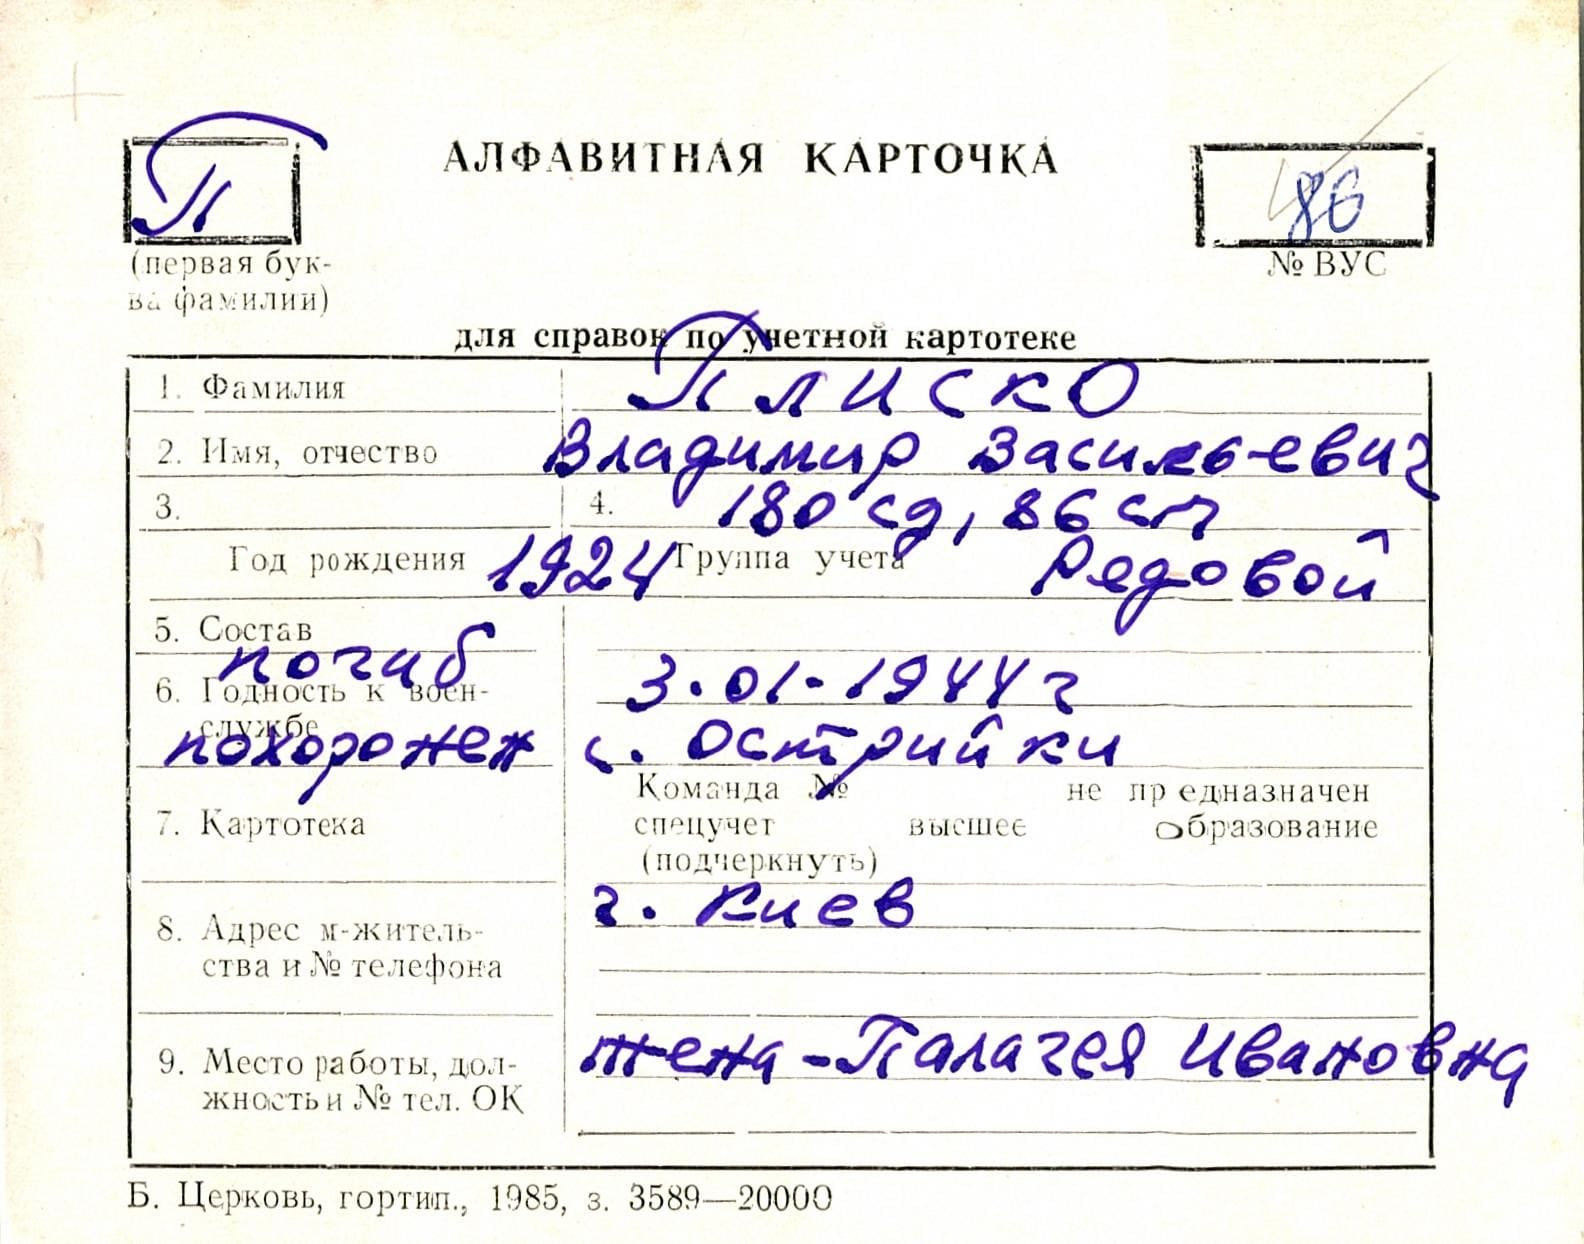 П
АЛФАВИТНАЯ КАРТОЧКА
86
(первая бук-
ва фамилии)
№ ВУС
для справок по учетной картотеке
1. Фамилия Плиско
2. Имя, отчество Владимир Васильевич
3. 4. 180 сд, 86 сп
Год рождения 1924 Группа учета Рядовой
5. Состав
погиб 3.01.1944 г
6. Годность к воен-
службе
похоронен с. Острийки
Команда № не предназначен
7. Картотека спецучет высшее образование
(подчеркнуть)
г. Киев
8. Адрес м-житель-
ства и № телефона
жена - Палагея Ивановна
9. Место работы, дол-
жность и № тел. ОК
Б. Церковь, гортип., 1985, з. 3589—20000